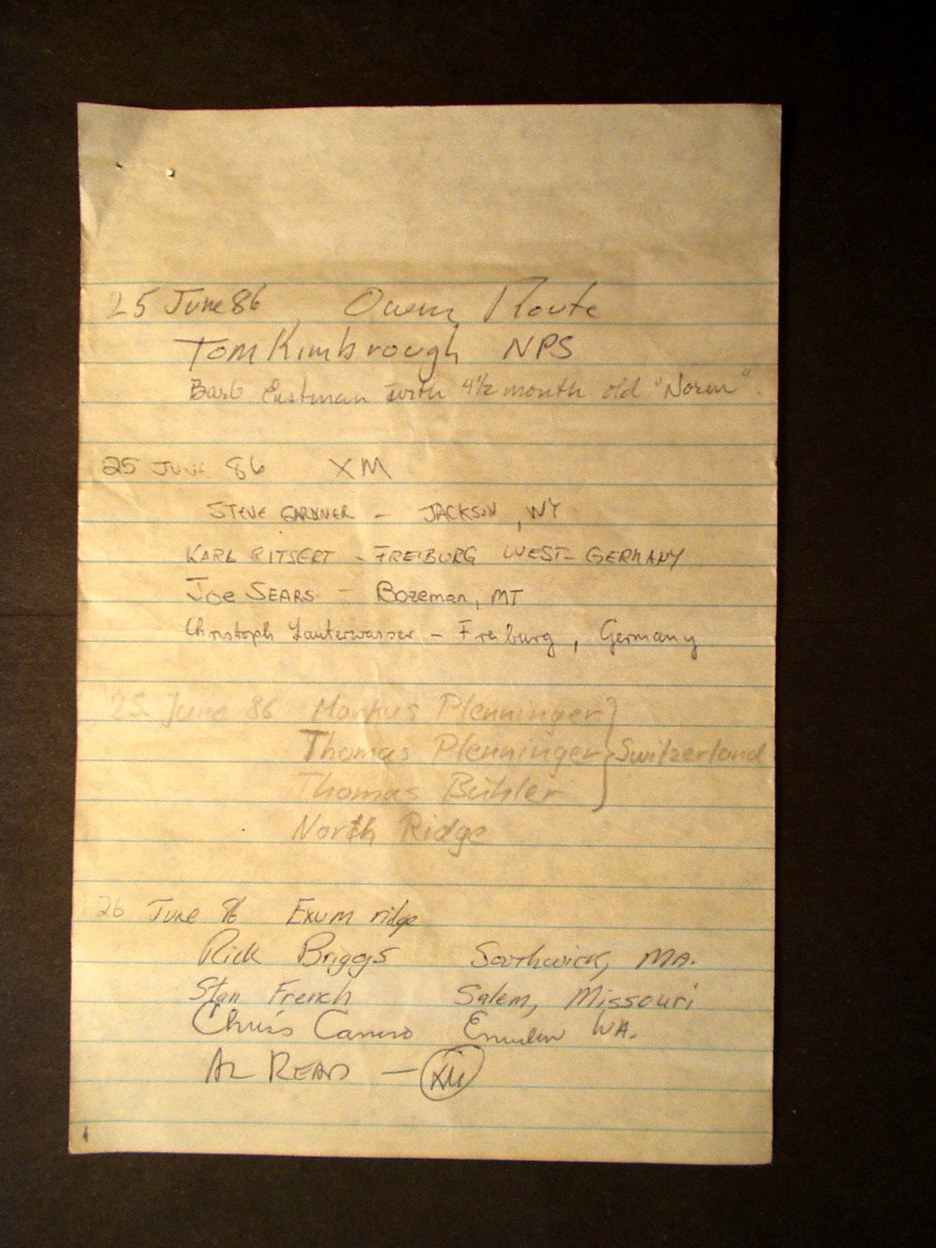 25 June 86 Owen Route
Tom Kimbrough NPS
Barb Eastman with 4½ month old "Noren".
25 June 86 XM
STEVE GARDNER - JACKSON, WY
KARL RITSERT - FREIBURG WEST-GERMANY
JOE SEARS - Bozeman, MT
Christoph Lauterwasser - Freiburg, Germany
25 June 86 Markus Plenninger
Thomas Plenninger } Switzerland
Thomas Bühler
North Ridge
26 June 86 Exum ridge
Rick Briggs Southwick, MA.
Stan French Salem, Missouri
Chris WA.
AL READ - XM